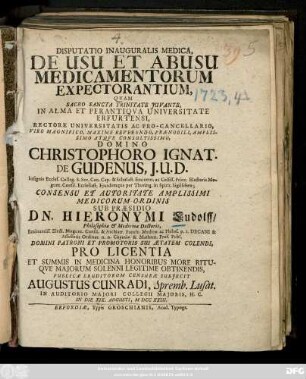 4.
395
1723,4
DISPUTATIO INAUGURALIS MEDICA,
DE USU ET ABUSU
MEDICAMENTORUM
EXPECTORANTIUM,
QUAM
SACRO SANCTA TRINITATE JUVANTE,
IN ALMA ET PERANTIQVA UNIVERSITATE
ERFURTENSI,
RECTORE UNIVERSITATIS AC PRO-CANCELLARIO,
VIRO MAGNIFICO, MAXIME REVERENDO, PRÆNOBILI, AMPLIS-
SIMO ATQVE CONSULTISSIMO,
DOMINO
CHRISTOPHORO IGNAT.
DE GUDENUS, I.U.D.
CONSENSU ET AUTORITATE AMPLISSIMI
MEDICORUM ORDINIS
SUB PRÆSIDIO
DN. HIERONYMI Ludolff,
Philosophiæ & Medicinæ Doctoris,
DOMINI PATRONI ET PROMOTORIS SUI ÆTATEM COLENDI,
PRO LICENTIA
ET SUMMIS IN MEDICINA HONORIBUS MORE RITU-
QVE MAJORUM SOLENNI LEGITIME OBTINENDIS,
PUBLICÆ ERUDITORUM CENSURÆ SUBJICIT
AUGUSTUS CUNRADI, Spremb. Lusat.
IN AUDITORIO MAJORI COLLEGII MAJORIS, H. C.
IN DIE XIX. AUGUSTI, M DCC XXIII.
ERFORDIÆ, Typis GROSCHIANIS, Acad. Typogr.